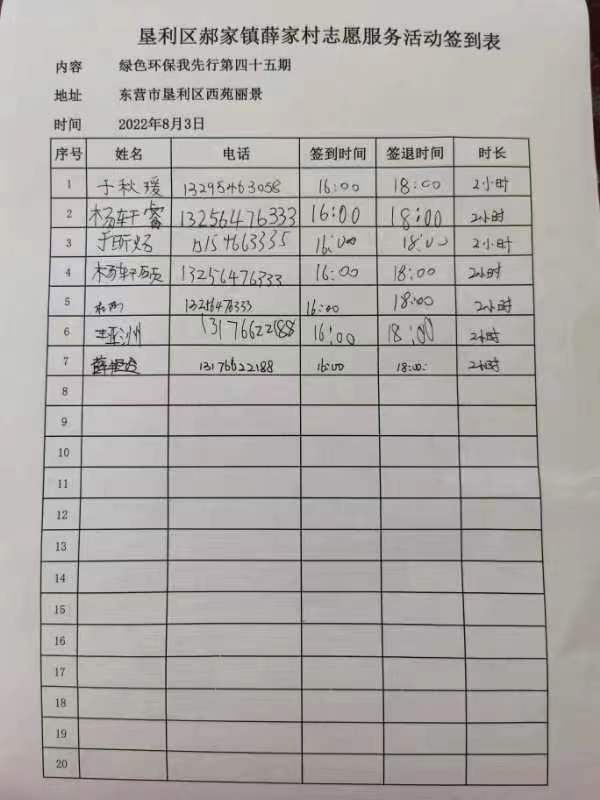 垦利区郝家镇薛家村志愿服务活动签到表
内容 绿色环保我先行第四十五期
地址 东营市垦利区西苑丽景
时间 2022年8月3日
序号 姓名 电话 签到时间 签退时间 时长
1 于秋瑗 13295463058 16:00 18:00 2小时
2 杨轩睿 13256476333 16:00 18:00 2小时
3 16:00 18:00 2小时
4 杨轩硕 13256476333 16:00 18:00 2小时
5 13256476333 16:00 18:00 2小时
6 亚洲 13176622188 16:00 18:00 2小时
7 13176622188 16:00 18:00 2小时
8
9
10
11
12
13
14
15
16
17
18
19
20